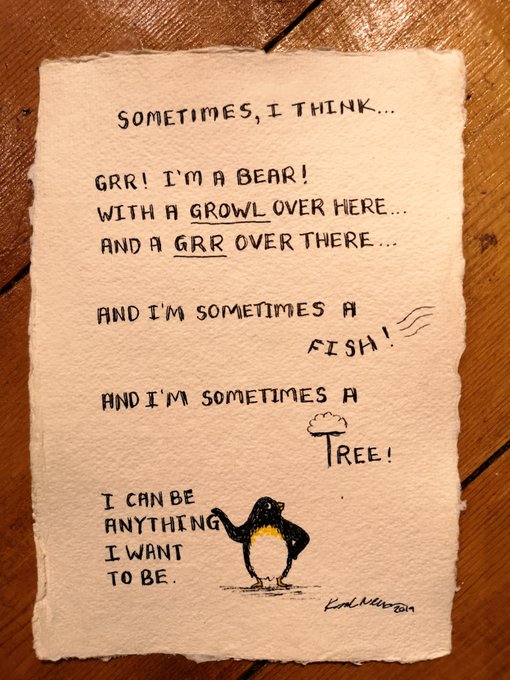 SOMETIMES, I THINK...
GRR! I'M A BEAR!
WITH A GROWL OVER HERE...
AND A GRR OVER THERE...
AND I'M SOMETIMES A
FISH!
AND I'M SOMETIMES A
TREE!
I CAN BE
ANYTHING
I WANT
TO BE.
2019